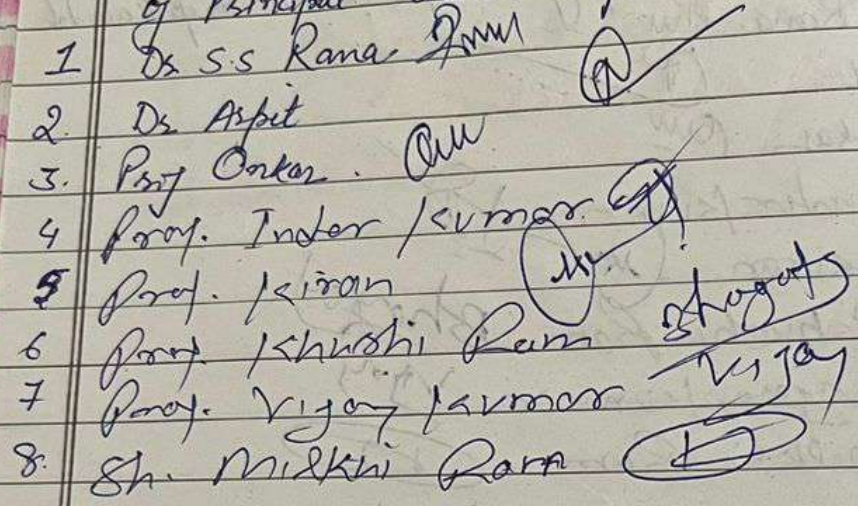 of Principal
1 Dr S.S Rana
2. Dr Arpit
3. Prof Onkar.
4 Prof. Inder Kumar
5 Prof. Kiran
6 Prof. Khushi Ram Bhagat
7 Prof. Vijay Kumar Vijay
8. Sh. Milkhi Ram